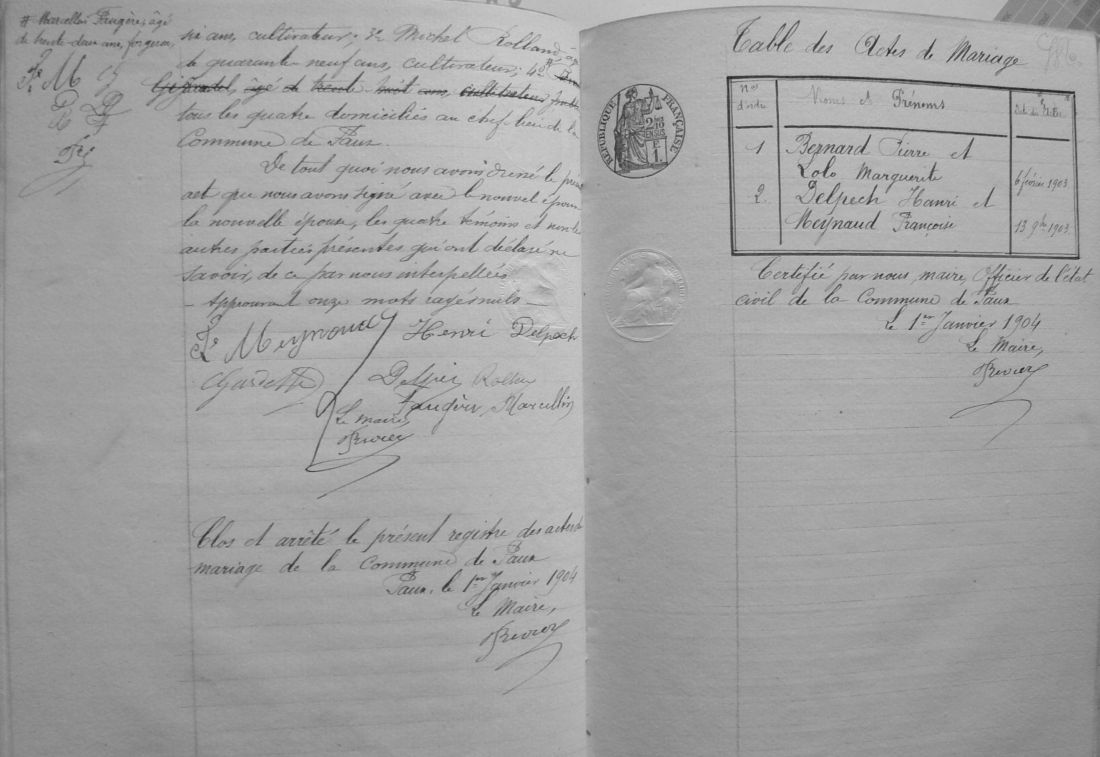 # Marcellin Faugère, âgé
de trente deux ans, forgeron,
six ans, cultivateur; 3º Michel Rolland, âgé
de quarante neuf ans, cultivateur; 4º #
Giraudel, âgé de trente huit ans, cultivateur
tous les quatre domiciliés au chef lieu de la
Commune de Paux.
De tout quoi nous avons dressé le présent
act que nous avons signé avec le nouvel époux
la nouvelle épouse, les quatre témoins et non les
autres parties présentes qui ont déclaré ne
savoir, de ce par nous interpellés
- Approuvant onze mots rayés nuls -
Meynaud Henri Delpech
Gardette
Rolland
Faugère Marcellin
Le Maire,
Clos et arrêté le présent registre des actes de
mariage de la Commune de Paux
Paux, le 1er Janvier 1904
Le Maire,
Table des Actes de Mariage
RÉPUBLIQUE FRANÇAISE
Nos d'ordre Noms et Prénoms
1 Bernard Pierre et
Lolo Marguerite 6 février 1903
2 Delpech Hanri et
Meynaud Françoise 13 9bre 1903
Certifié par nous, maire, Officier de l'état
civil de la Commune de Paux
Le 1er Janvier 1904
Le Maire,